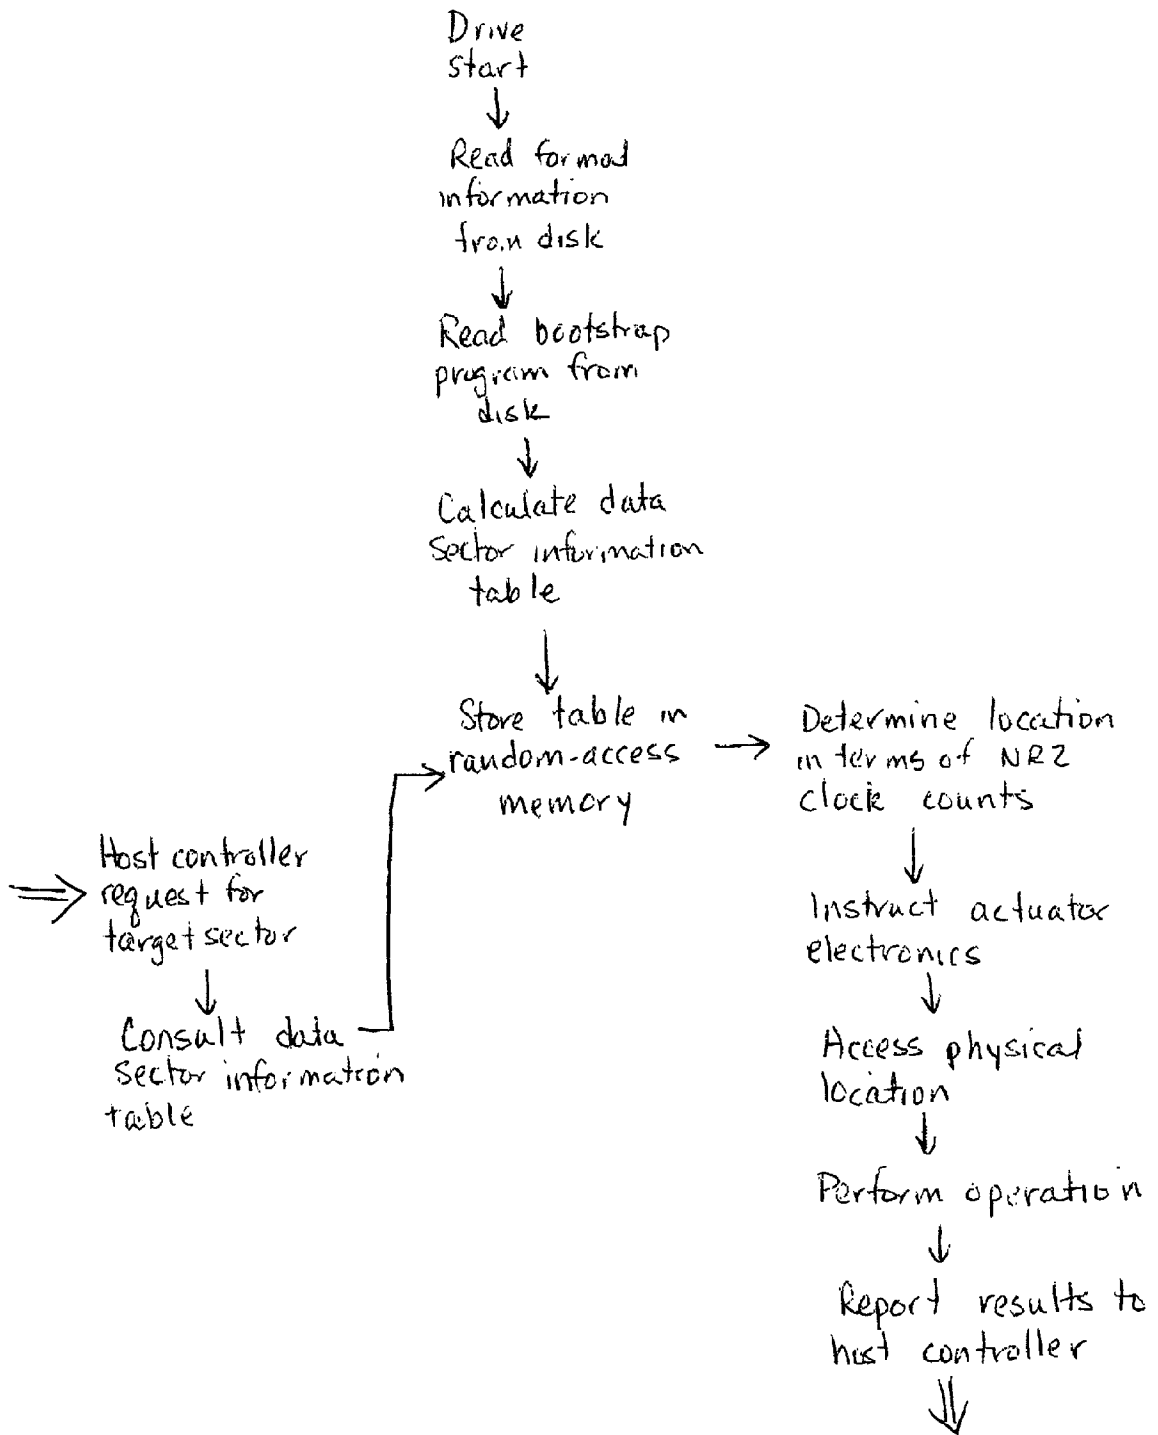 Drive
start
Read format
information
from disk
Read bootstrap
program from
disk
Calculate data
sector information
table
Store table in
random-access
memory
Host controller
request for
target sector
Consult data
sector information
table
Determine location
in terms of NRZ
clock counts
Instruct actuator
electronics
Access physical
location
Perform operation
Report results to
host controller